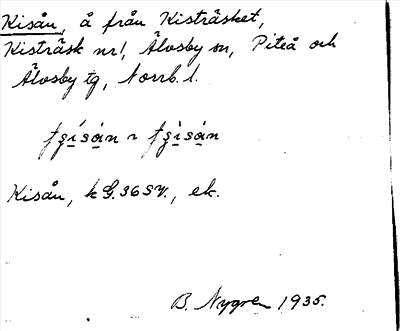 Kisån, å från Kisträsket,
Kisträsk nr 1, Älvsby sn, Piteå och
Älvsby tg, Norrb. l.
Kisån, k G. 36 SV., ek.
B. Nygren 1935.